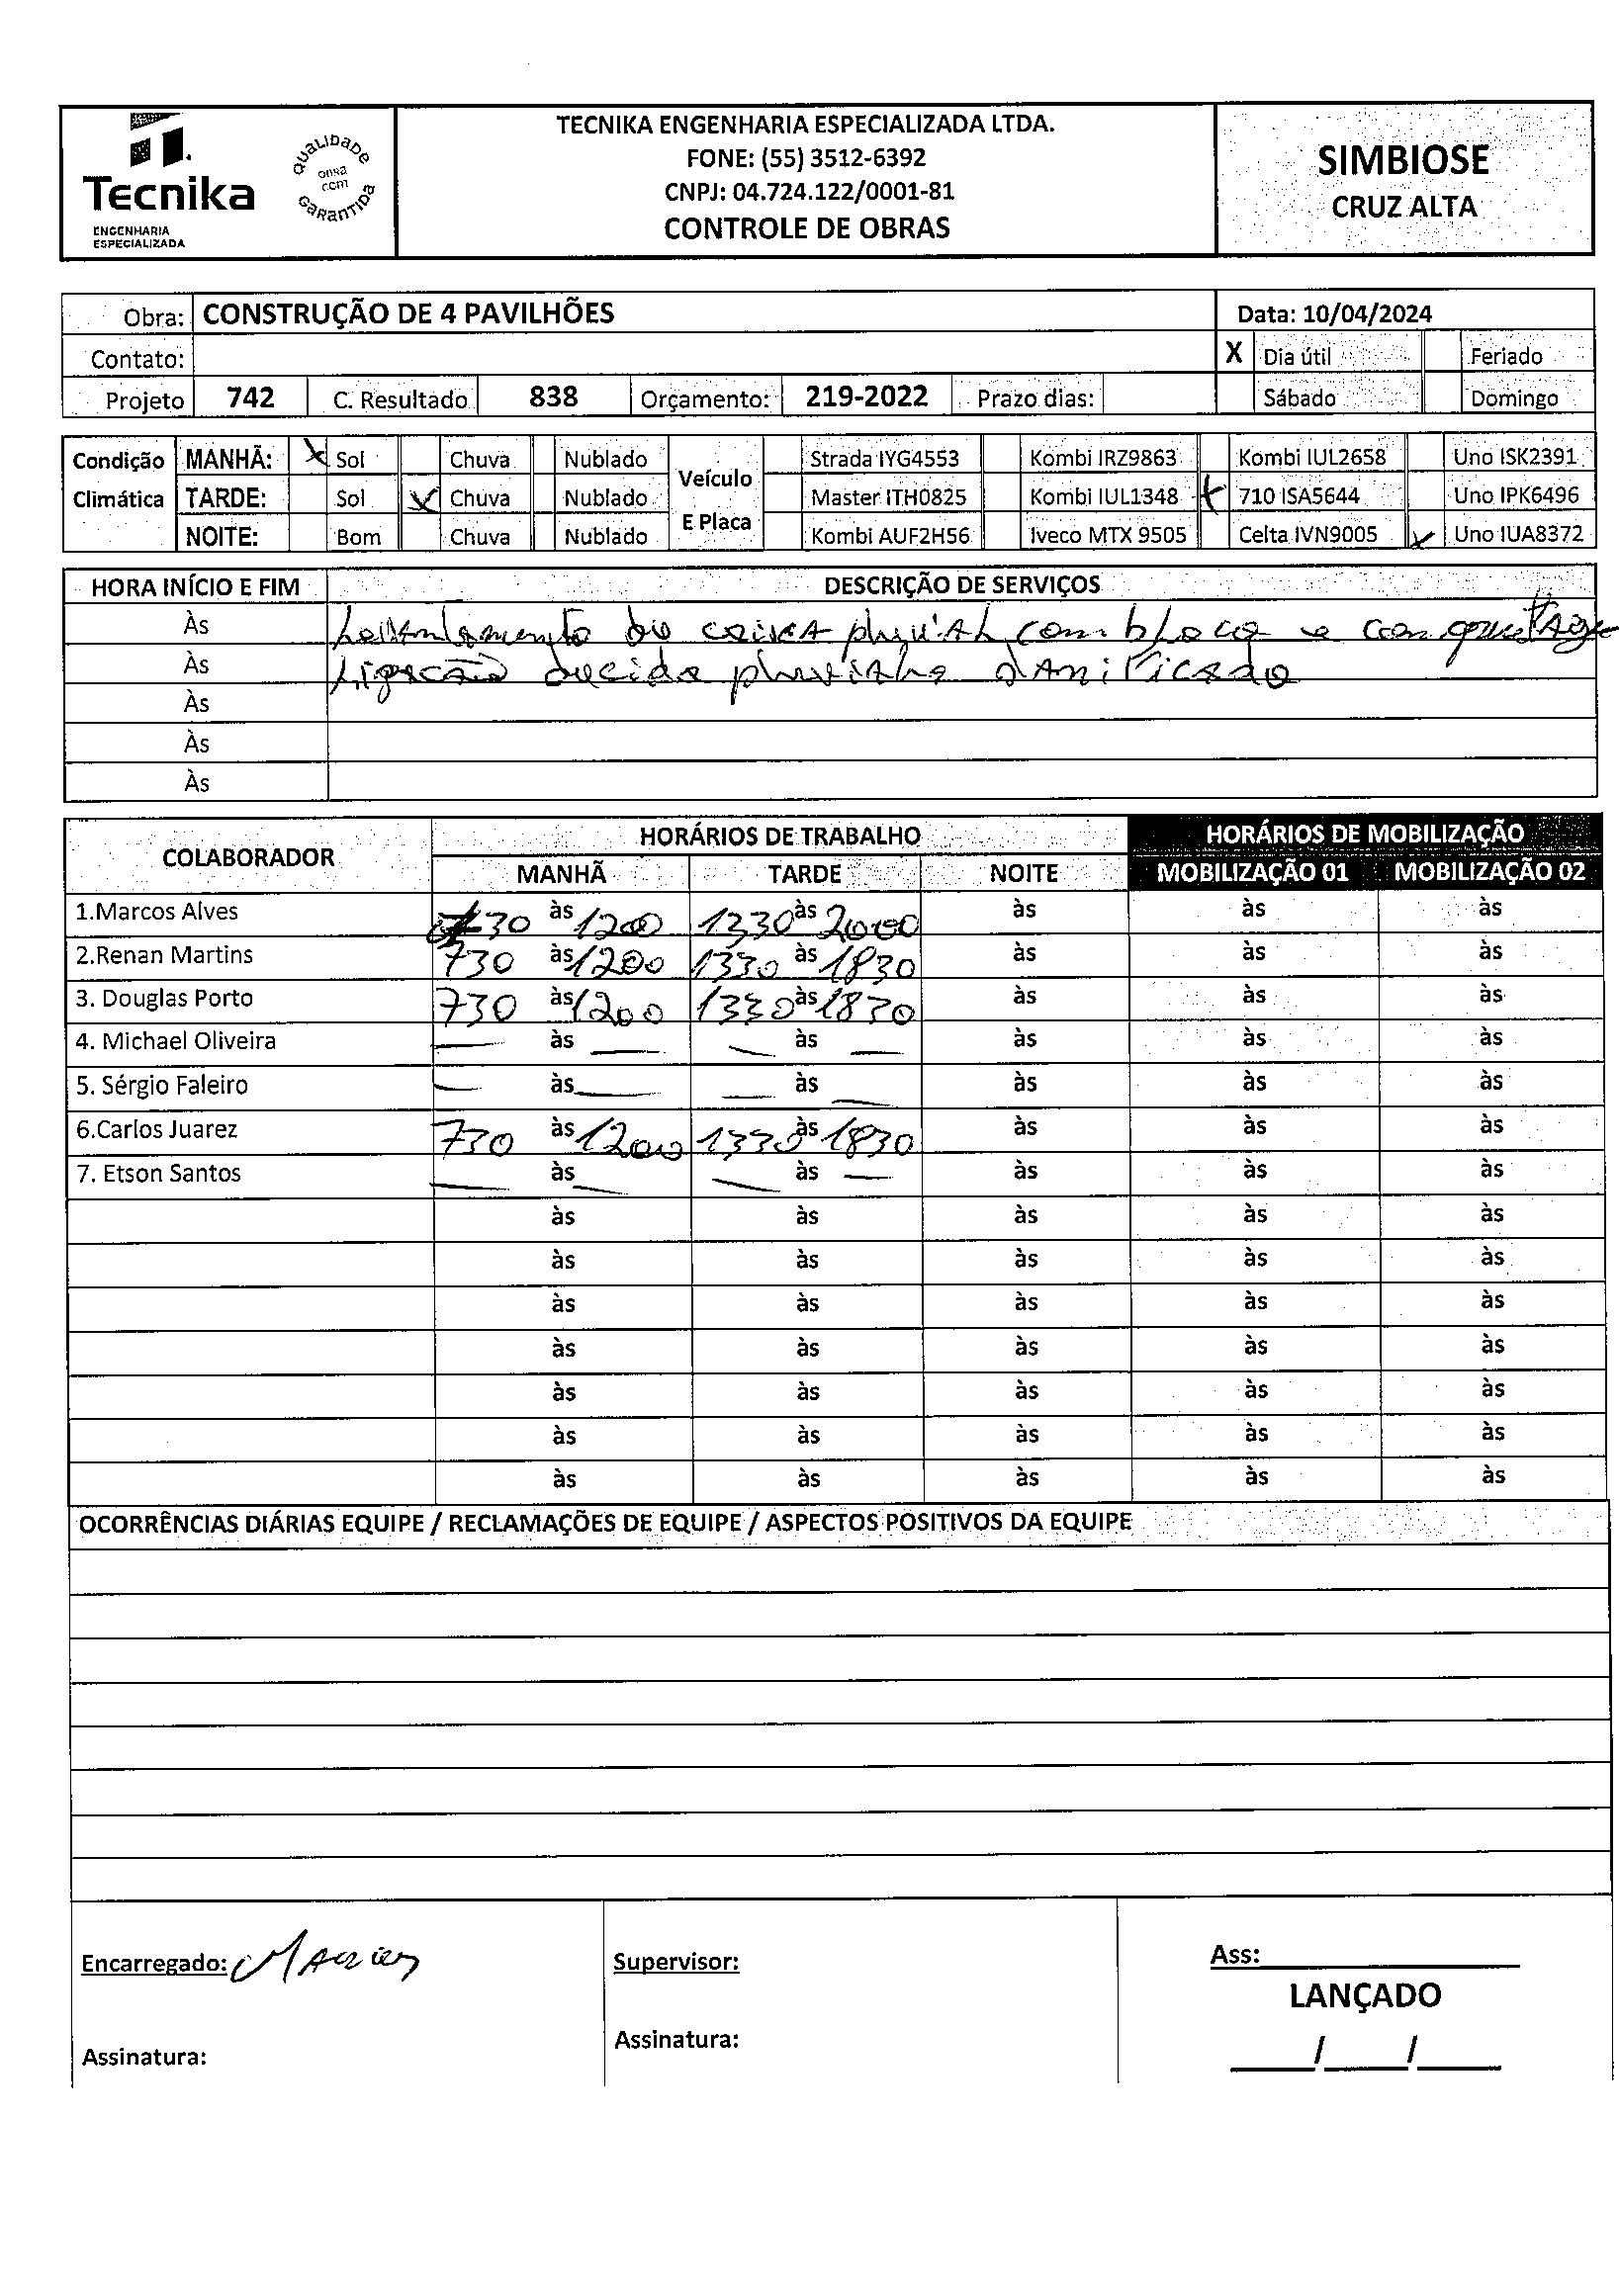 Tecnika
ENGENHARIA
ESPECIALIZADA
QUALIDADE
GARANTIDA
TECNIKA ENGENHARIA ESPECIALIZADA LTDA.
FONE: (55) 3512-6392
CNPJ: 04.724.122/0001-81
CONTROLE DE OBRAS
SIMBIOSE
CRUZ ALTA
Obra: CONSTRUÇÃO DE 4 PAVILHÕES Data: 10/04/2024
Contato: X Dia útil Feriado
Projeto 742 C. Resultado 838 Orçamento: 219-2022 Prazo dias: Sábado Domingo
Condição Climática Veículo E Placa
MANHÃ: X Sol Chuva Nublado Strada IYG4553 Kombi IRZ9863 Kombi IUL2658 Uno ISK2391
TARDE: Sol X Chuva Nublado Master ITH0825 Kombi IUL1348 X 710 ISA5644 Uno IPK6496
NOITE: Bom Chuva Nublado Kombi AUF2H56 Iveco MTX 9505 Celta IVN9005 X Uno IUA8372
HORA INÍCIO E FIM DESCRIÇÃO DE SERVIÇOS
Às caixa pluvial com bloco e
Às Ligação danificado
Às
Às
Às
COLABORADOR HORÁRIOS DE TRABALHO HORÁRIOS DE MOBILIZAÇÃO
MANHÃ TARDE NOITE MOBILIZAÇÃO 01 MOBILIZAÇÃO 02
1.Marcos Alves 730 às 1200 1330 às 2000 às às às
2.Renan Martins 730 às 1200 1330 às 1830 às às às
3. Douglas Porto 730 às 1200 1330 às 1830 às às às
4. Michael Oliveira — às — — às — às às às
5. Sérgio Faleiro — às — — às — às às às
6.Carlos Juarez 730 às 1200 1330 às 1830 às às às
7. Etson Santos — às — — às — às às às
às às às às às
às às às às às
às às às às às
às às às às às
às às às às às
às às às às às
às às às às às
OCORRÊNCIAS DIÁRIAS EQUIPE / RECLAMAÇÕES DE EQUIPE / ASPECTOS POSITIVOS DA EQUIPE
Encarregado: Supervisor: Ass:
LANÇADO
Assinatura: Assinatura: / /